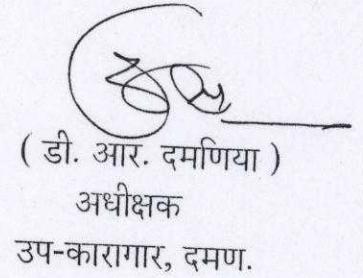 ( डी. आर. दमणिया )
अधीक्षक
उप-कारागार, दमण.